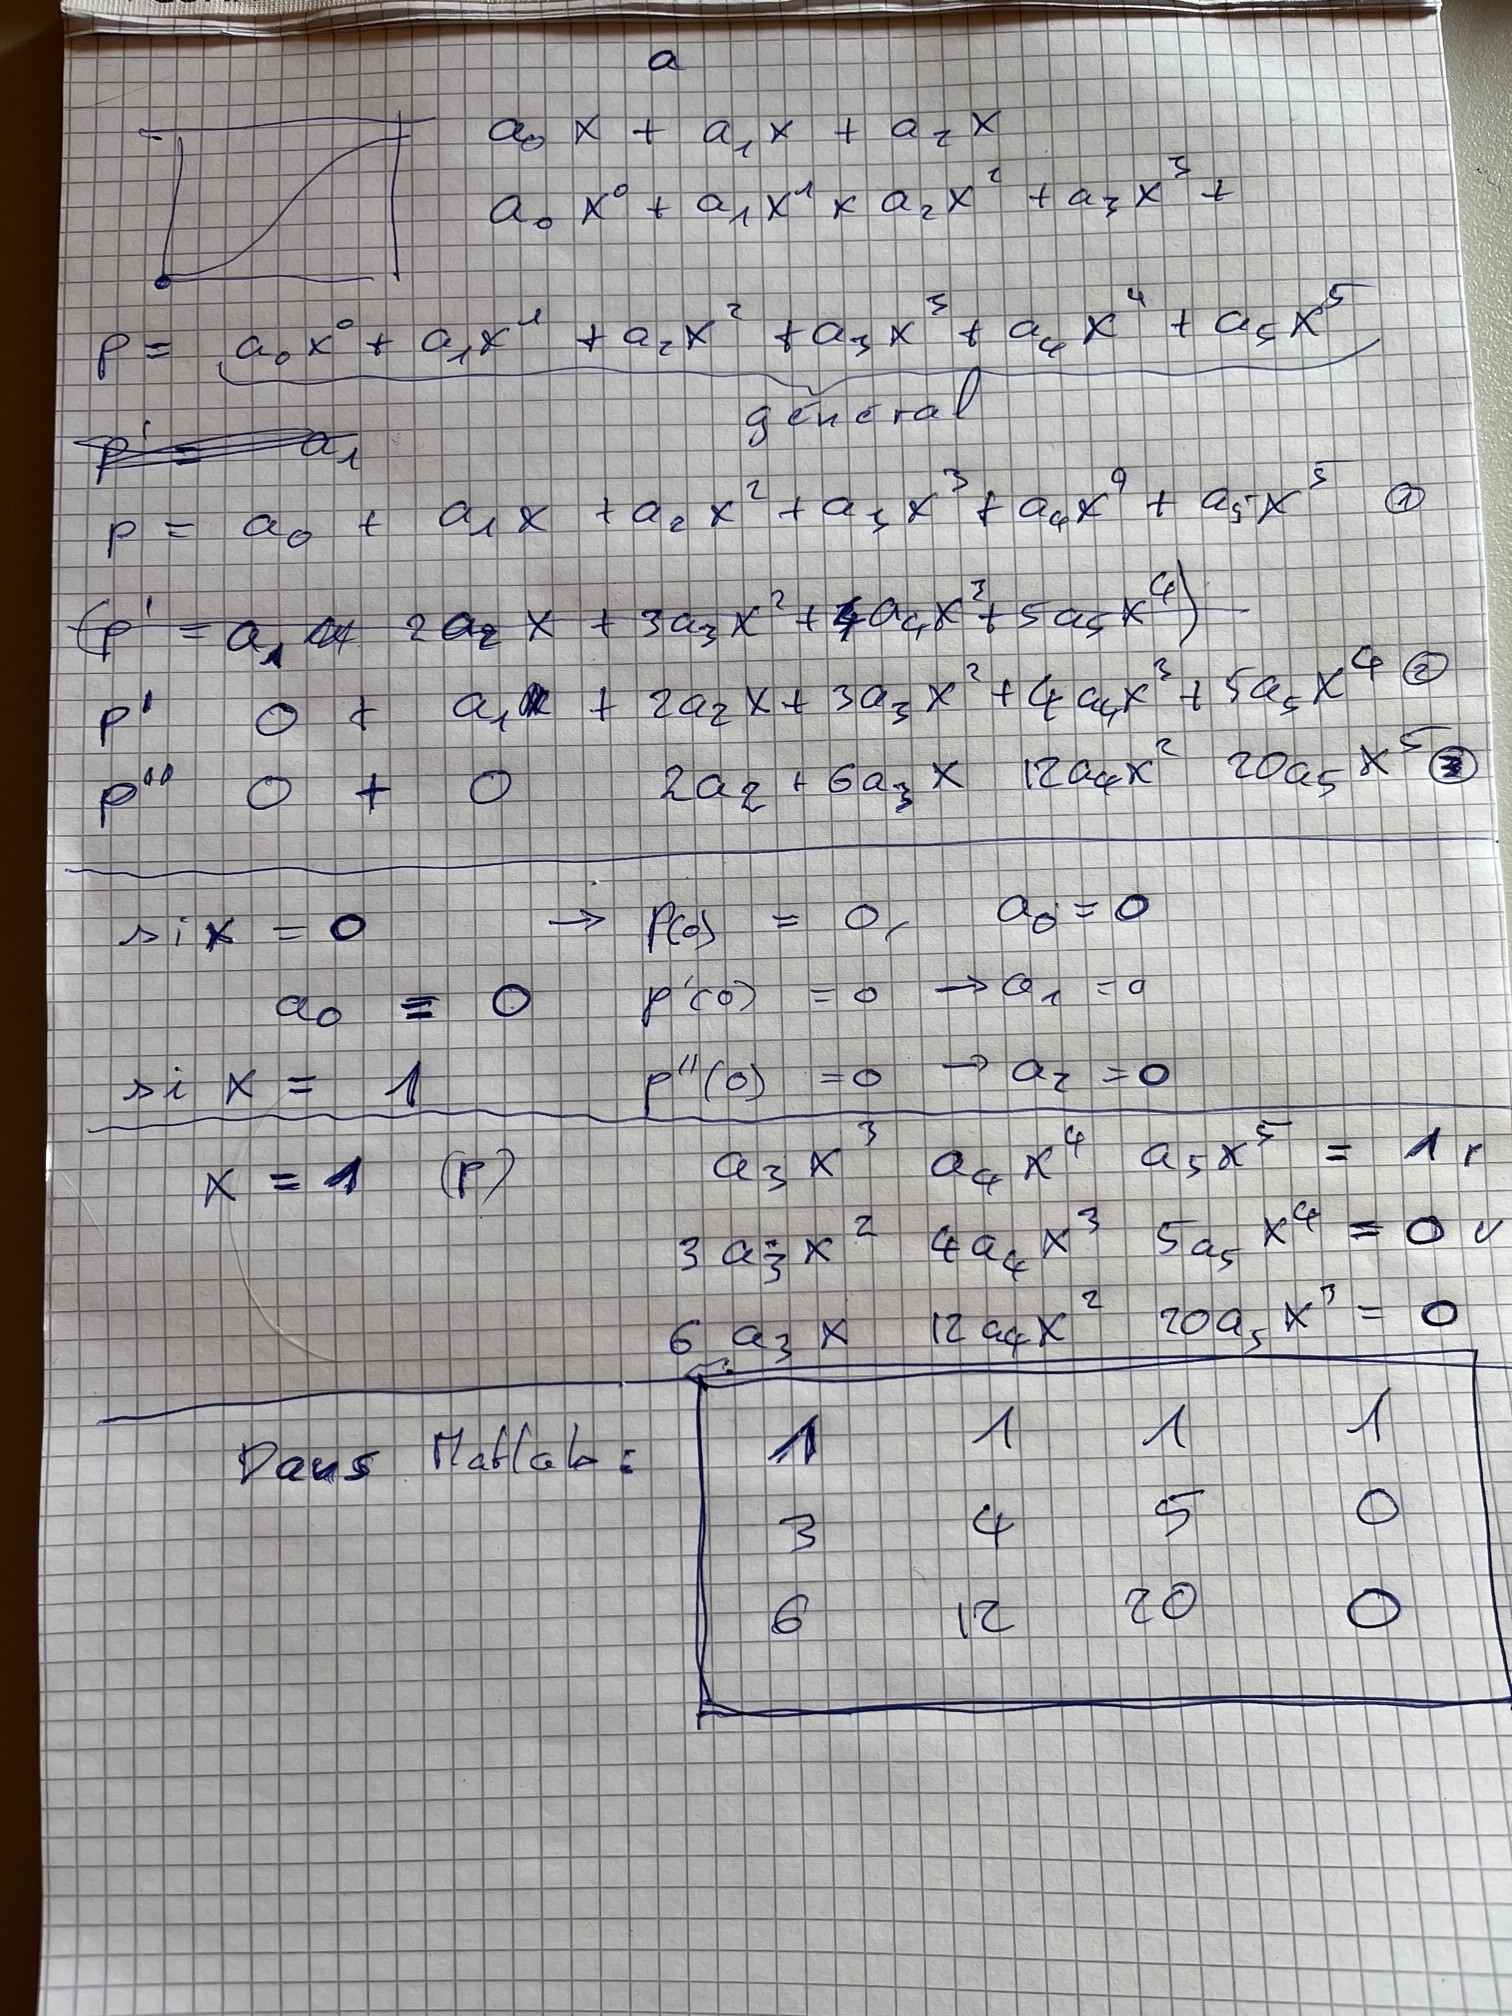 a
a₀ x + a₁ x + a₂ x
a₀ x⁰ + a₁ x¹ x a₂ x² + a₃ x³ +
p = a₀ x⁰ + a₁ x¹ + a₂ x² + a₃ x³ + a₄ x⁴ + a₅ x⁵
général
p' = a₁
p = a₀ + a₁ x + a₂ x² + a₃ x³ + a₄ x⁴ + a₅ x⁵ ①
(p' = a₁ 2a₂ x + 3a₃ x² + 4a₄ x³ + 5a₅ x⁴)
p' 0 + a₁ + 2a₂ x + 3a₃ x² + 4a₄ x³ + 5a₅ x⁴ ②
p'' 0 + 0 2a₂ + 6a₃ x 12a₄ x² 20a₅ x⁵ ③
si x = 0 → p(0) = 0, a₀ = 0
a₀ = 0 p'(0) = 0 → a₁ = 0
si x = 1 p''(0) = 0 → a₂ = 0
x = 1 (p) a₃ x³ a₄ x⁴ a₅ x⁵ = 1
3 a₃ x² 4a₄ x³ 5a₅ x⁴ = 0
6 a₃ x 12 a₄ x² 20a₅ x³ = 0
Dans Matlab :
1 1 1 1
3 4 5 0
6 12 20 0